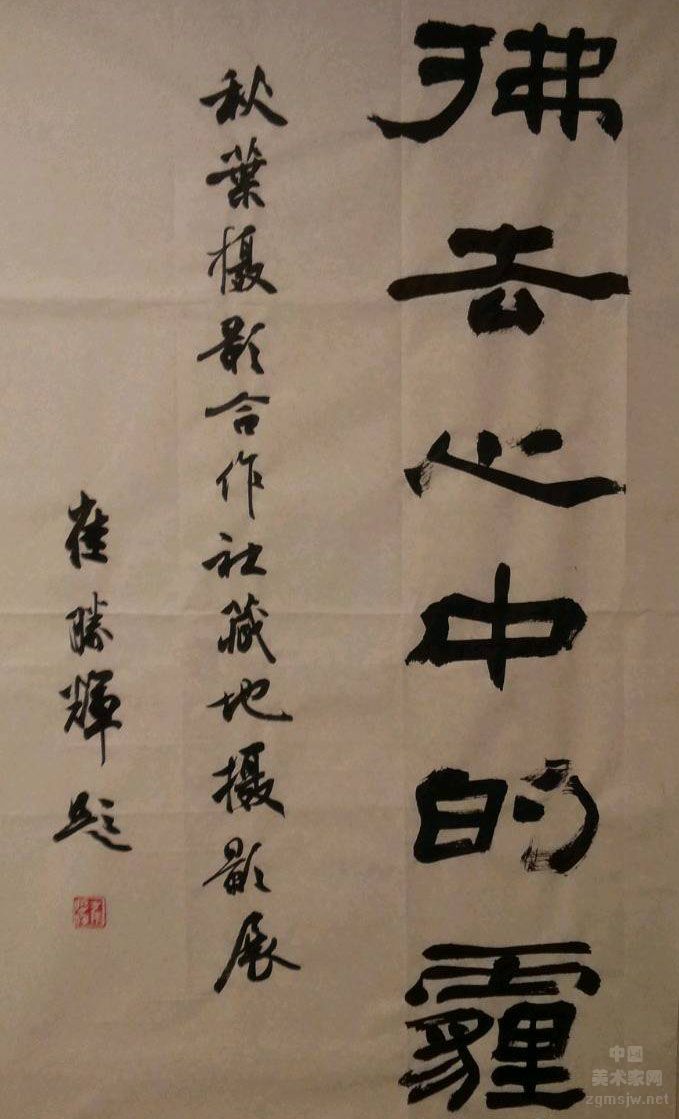 拂去心中的霾
秋葉摄影合作社藏地摄影展
崔勝輝题
中国
美术家网
zgmsjw.net